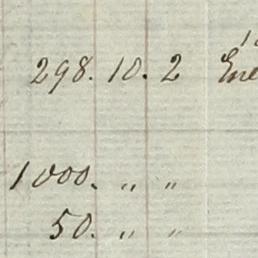 298. 10. 2
1000. „ „
50. „ „